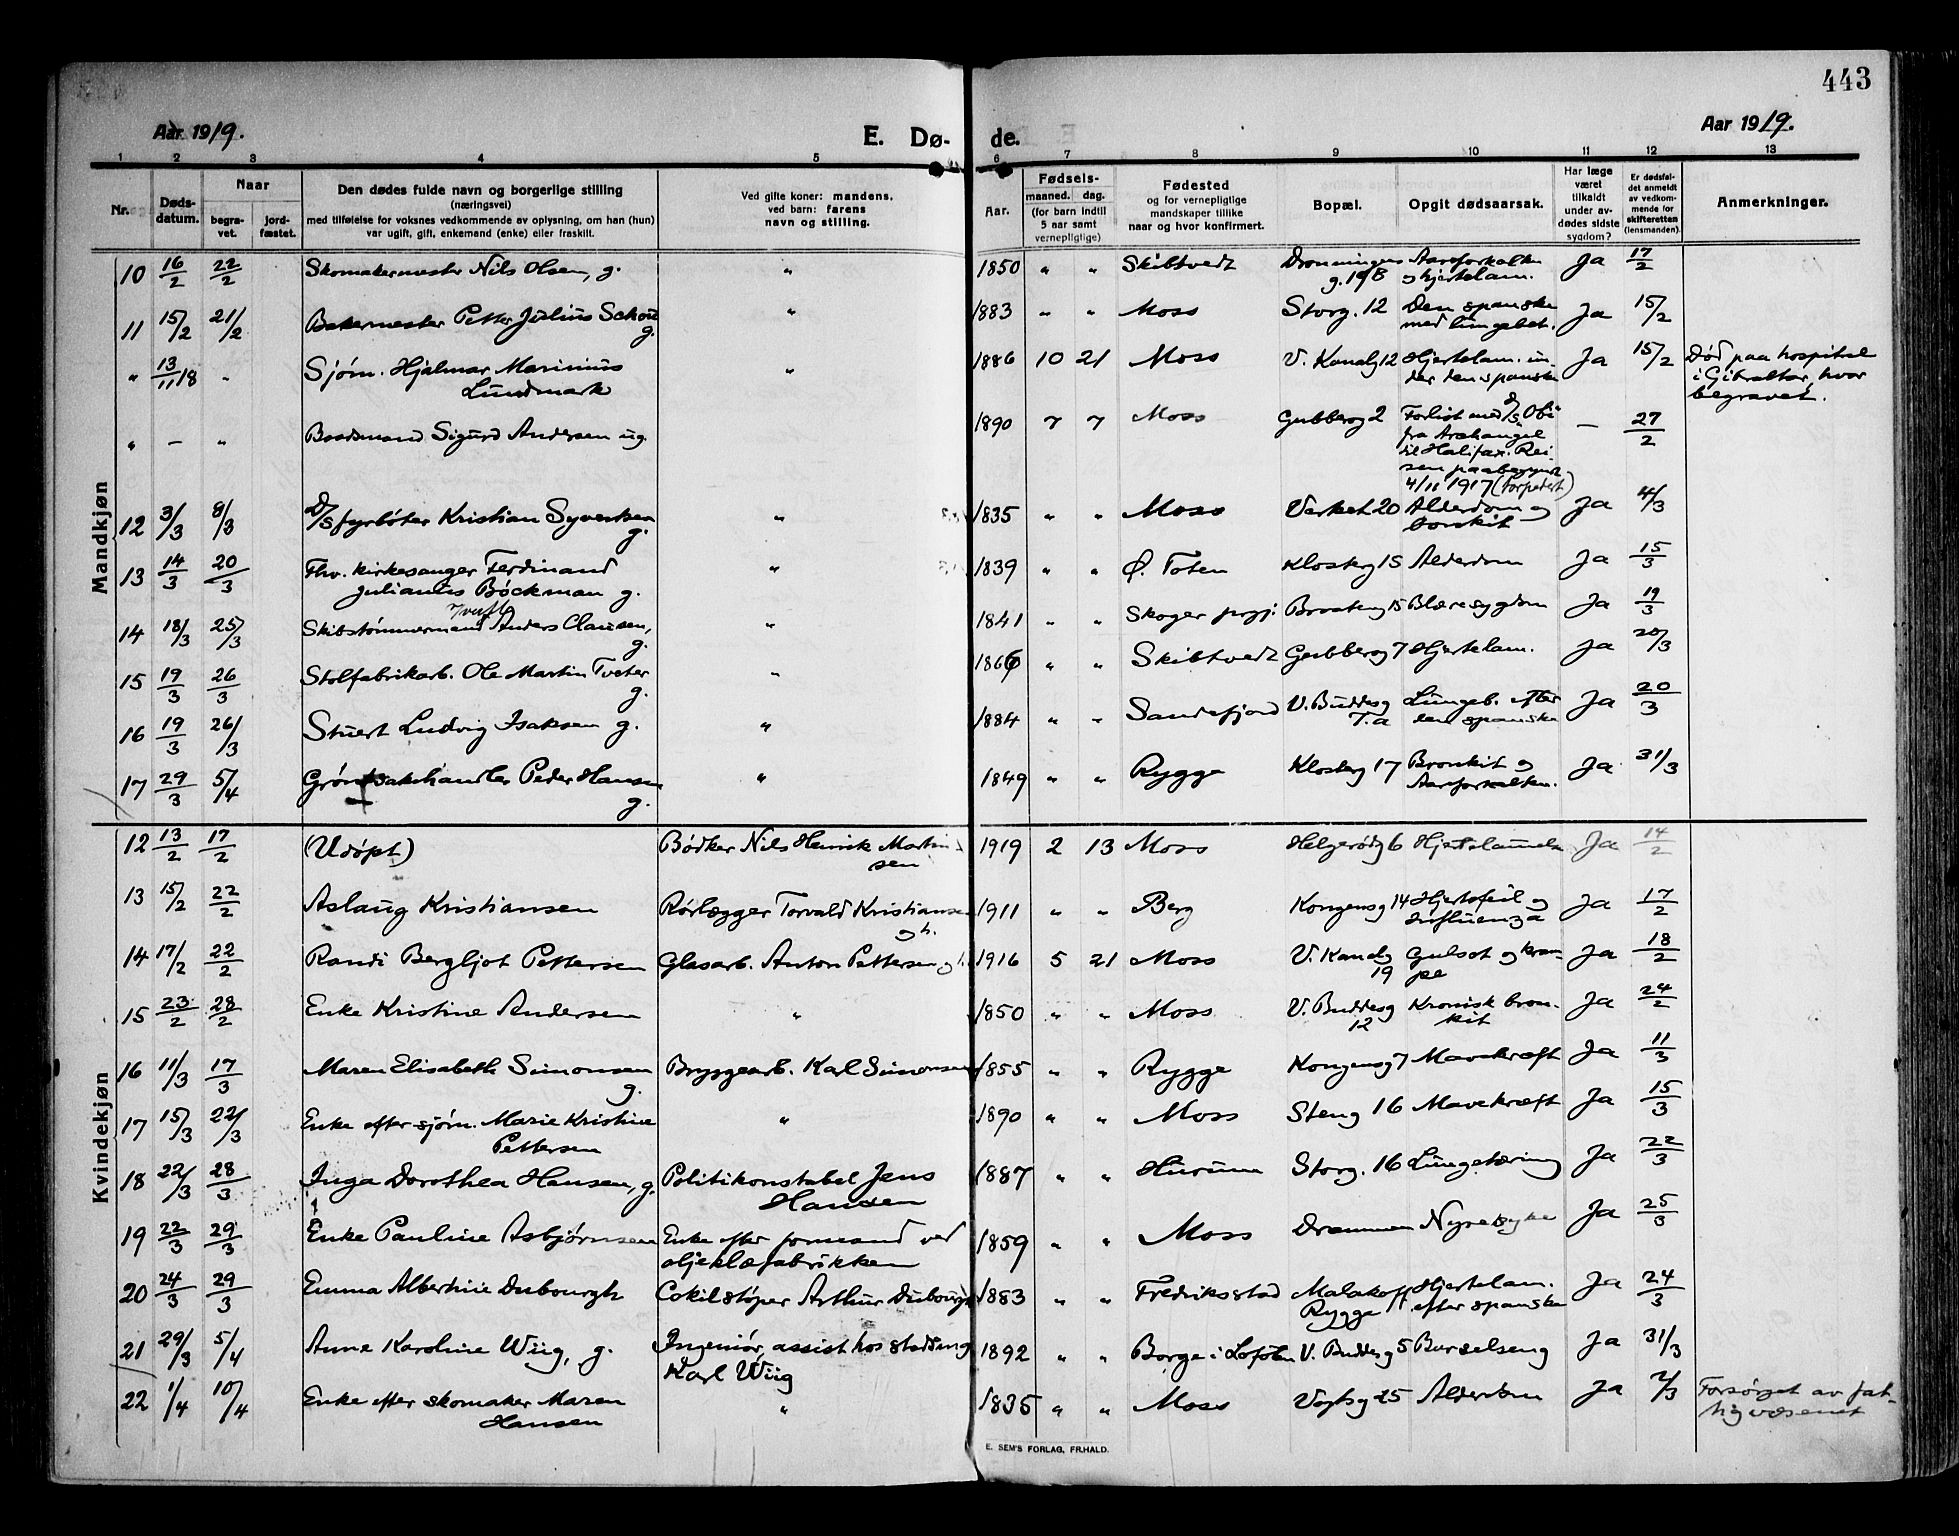 443
Aar 1919.
E. Dø-
de.
Aar 1919.
1 2 3 4 5 6 7 8 9 10 11 12 13
Nr.
Døds-
datum.
Naar
begra-
vet.
jord-
fæstet.
Den dødes fulde navn og borgerlige stilling
(næringsvei)
med tilføielse for voksnes vedkommende av oplysning, om han (hun)
var ugift, gift, enkemand (enke) eller fraskilt.
Ved gifte koner: mandens,
ved barn: farens
navn og stilling.
Aar.
Fødsels-
maaned. dag.
(for barn indtil
5 aar samt
vernepligtige)
Fødested
og for vernepligtige
mandskaper tillike
naar og hvor konfirmert.
Bopæl.
Opgit dødsaarsak.
Har læge
været
tilkaldt
under av-
dødes sidste
sygdom?
Er dødsfal-
det anmeldt
av vedkom-
mende for
skifteretten
(lensmanden).
Anmerkninger.
Mandkjøn
10 16/2 22/2 Skomakermester Nils Olsen, g. " 1850 " " Skibtvedt Dronningens g. 19B Aareforkalkn. og hjertelam. Ja 17/2
11 15/2 21/2 Bakermester Petter Julius Schou g. " 1883 " " Moss Storg. 12 Den spanske med lungebet. Ja 15/2
" 13/11 18 " Sjøm. Hjalmar Marinius Lundmark " 1886 10 21 Moss V. Kanalg 12 Hjertelam. under den spanske Ja 15/2 Død paa hospital i Gibraltar, hvor begravet.
" – " Baadsmand Sigurd Andersen ug. 1890 7 7 Moss Gubberg 2 Forlist med D/S "Obi" fra Archangel til Halifax. Reisen paabegyndt 4/11 1917 (torpedert) – 27/2
12 3/3 8/3 D/S fyrbøter Kristian Syvertsen g. " 1835 " " Moss Verket 20 Alderdom og bronkit Ja 4/3
13 14/3 20/3 Fhv. kirkesanger Ferdinand Julianus Bøckman g. " 1839 " " Ø. Toten Klosterg 15 Alderdom Ja 15/3
14 18/3 25/3 Skibstømmermand Anders Clausen, g. " 1841 " " Skoger prgj. 15 Blæresygdom Ja 19/3
15 19/3 26/3 Stolfabrikarb. Ole Martin Tveter g. " 1866 " " Skibtvedt Gubberg 7 Hjertelam. Ja 20/3
16 19/3 26/3 Stuert Ludvig Isaksen g. " 1884 " " Sandefjord V. Buddesg 7.a Lungeb. efter den spanske Ja 20/3
17 29/3 5/4 Grøntsakshandler Peder Hansen g. " 1849 " " Rygge Klosterg 17 Bronkit og Aareforkalkn. Ja 31/3
Kvindekjøn
12 13/2 17/2 (Udøpt) Bødker Nils Henrik Martinsen 1919 2 13 Moss Helgerødg 6 Hjertelammelse Ja 14/2
13 15/2 22/2 Aslaug Kristiansen Rørlægger Torvald Kristiansen og h. 1911 " " Berg Kongensg 14 Hjertefeil og influenza Ja 17/2
14 17/2 22/2 Randi Bergljot Pettersen Glasarb. Anton Pettersen og h. 1916 5 21 Moss V. Kanalg 19 Gulsot og krampe Ja 18/2
15 23/2 28/2 Enke Kristine Andersen " 1850 " " Moss V. Buddesg 12 Kronisk bronkit Ja 24/2
16 11/3 17/3 Maren Elisabeth Simonsen g. Bryggearb. Karl Simonsen 1855 " " Rygge Kongensg 7 Mavekræft Ja 11/3
17 15/3 22/3 Enke efter sjøm. Marie Kristine Pettersen " 1890 " " Moss Steng 16 Mavekræft Ja 15/3
18 22/3 28/3 Inga Dorothea Hansen, g. Politikonstabel Jens Hansen 1887 " " Hurum Storg. 16 Lungetæring Ja 22/3
19 22/3 29/3 Enke Pauline Asbjørnsen Enke efter formand ved oljeklæfabrikken 1859 " " Moss Drammen Nyresyke Ja 25/3
20 24/3 29/3 Emma Albertine Dubourgh Cokilstøper Arthur Dubourgh 1883 " " Fredriksstad Malakoff Rygge Hjertelam. efter spanske Ja 24/3
21 29/3 5/4 Anne Karoline Wiig, g. Ingeniør, assist hos stadsing Karl Wiig 1892 " " Borge i Lofoten V. Buddesg 5 Barselseng Ja 31/3
22 1/4 10/4 Enke efter skomaker Maren Hansen " 1835 " " Moss Vogtsg 25 Alderdom Ja 2/3 Forsørget av fattigvæsenet
E. SEM'S FORLAG, FR.HALD.